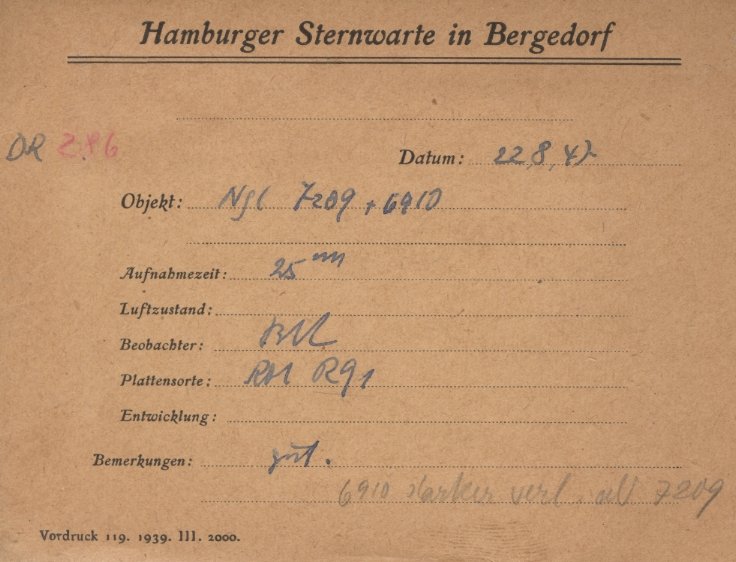 Hamburger Sternwarte in Bergedorf
DR 286
Datum: 22,8,47
Objekt: NGC 7209 + 6910
Aufnahmezeit: 25 m
Luftzustand:
Beobachter:
Plattensorte: R91
Entwicklung:
Bemerkungen: gut.
6910 starker verl. als 7209
Vordruck 119. 1939. III. 2000.